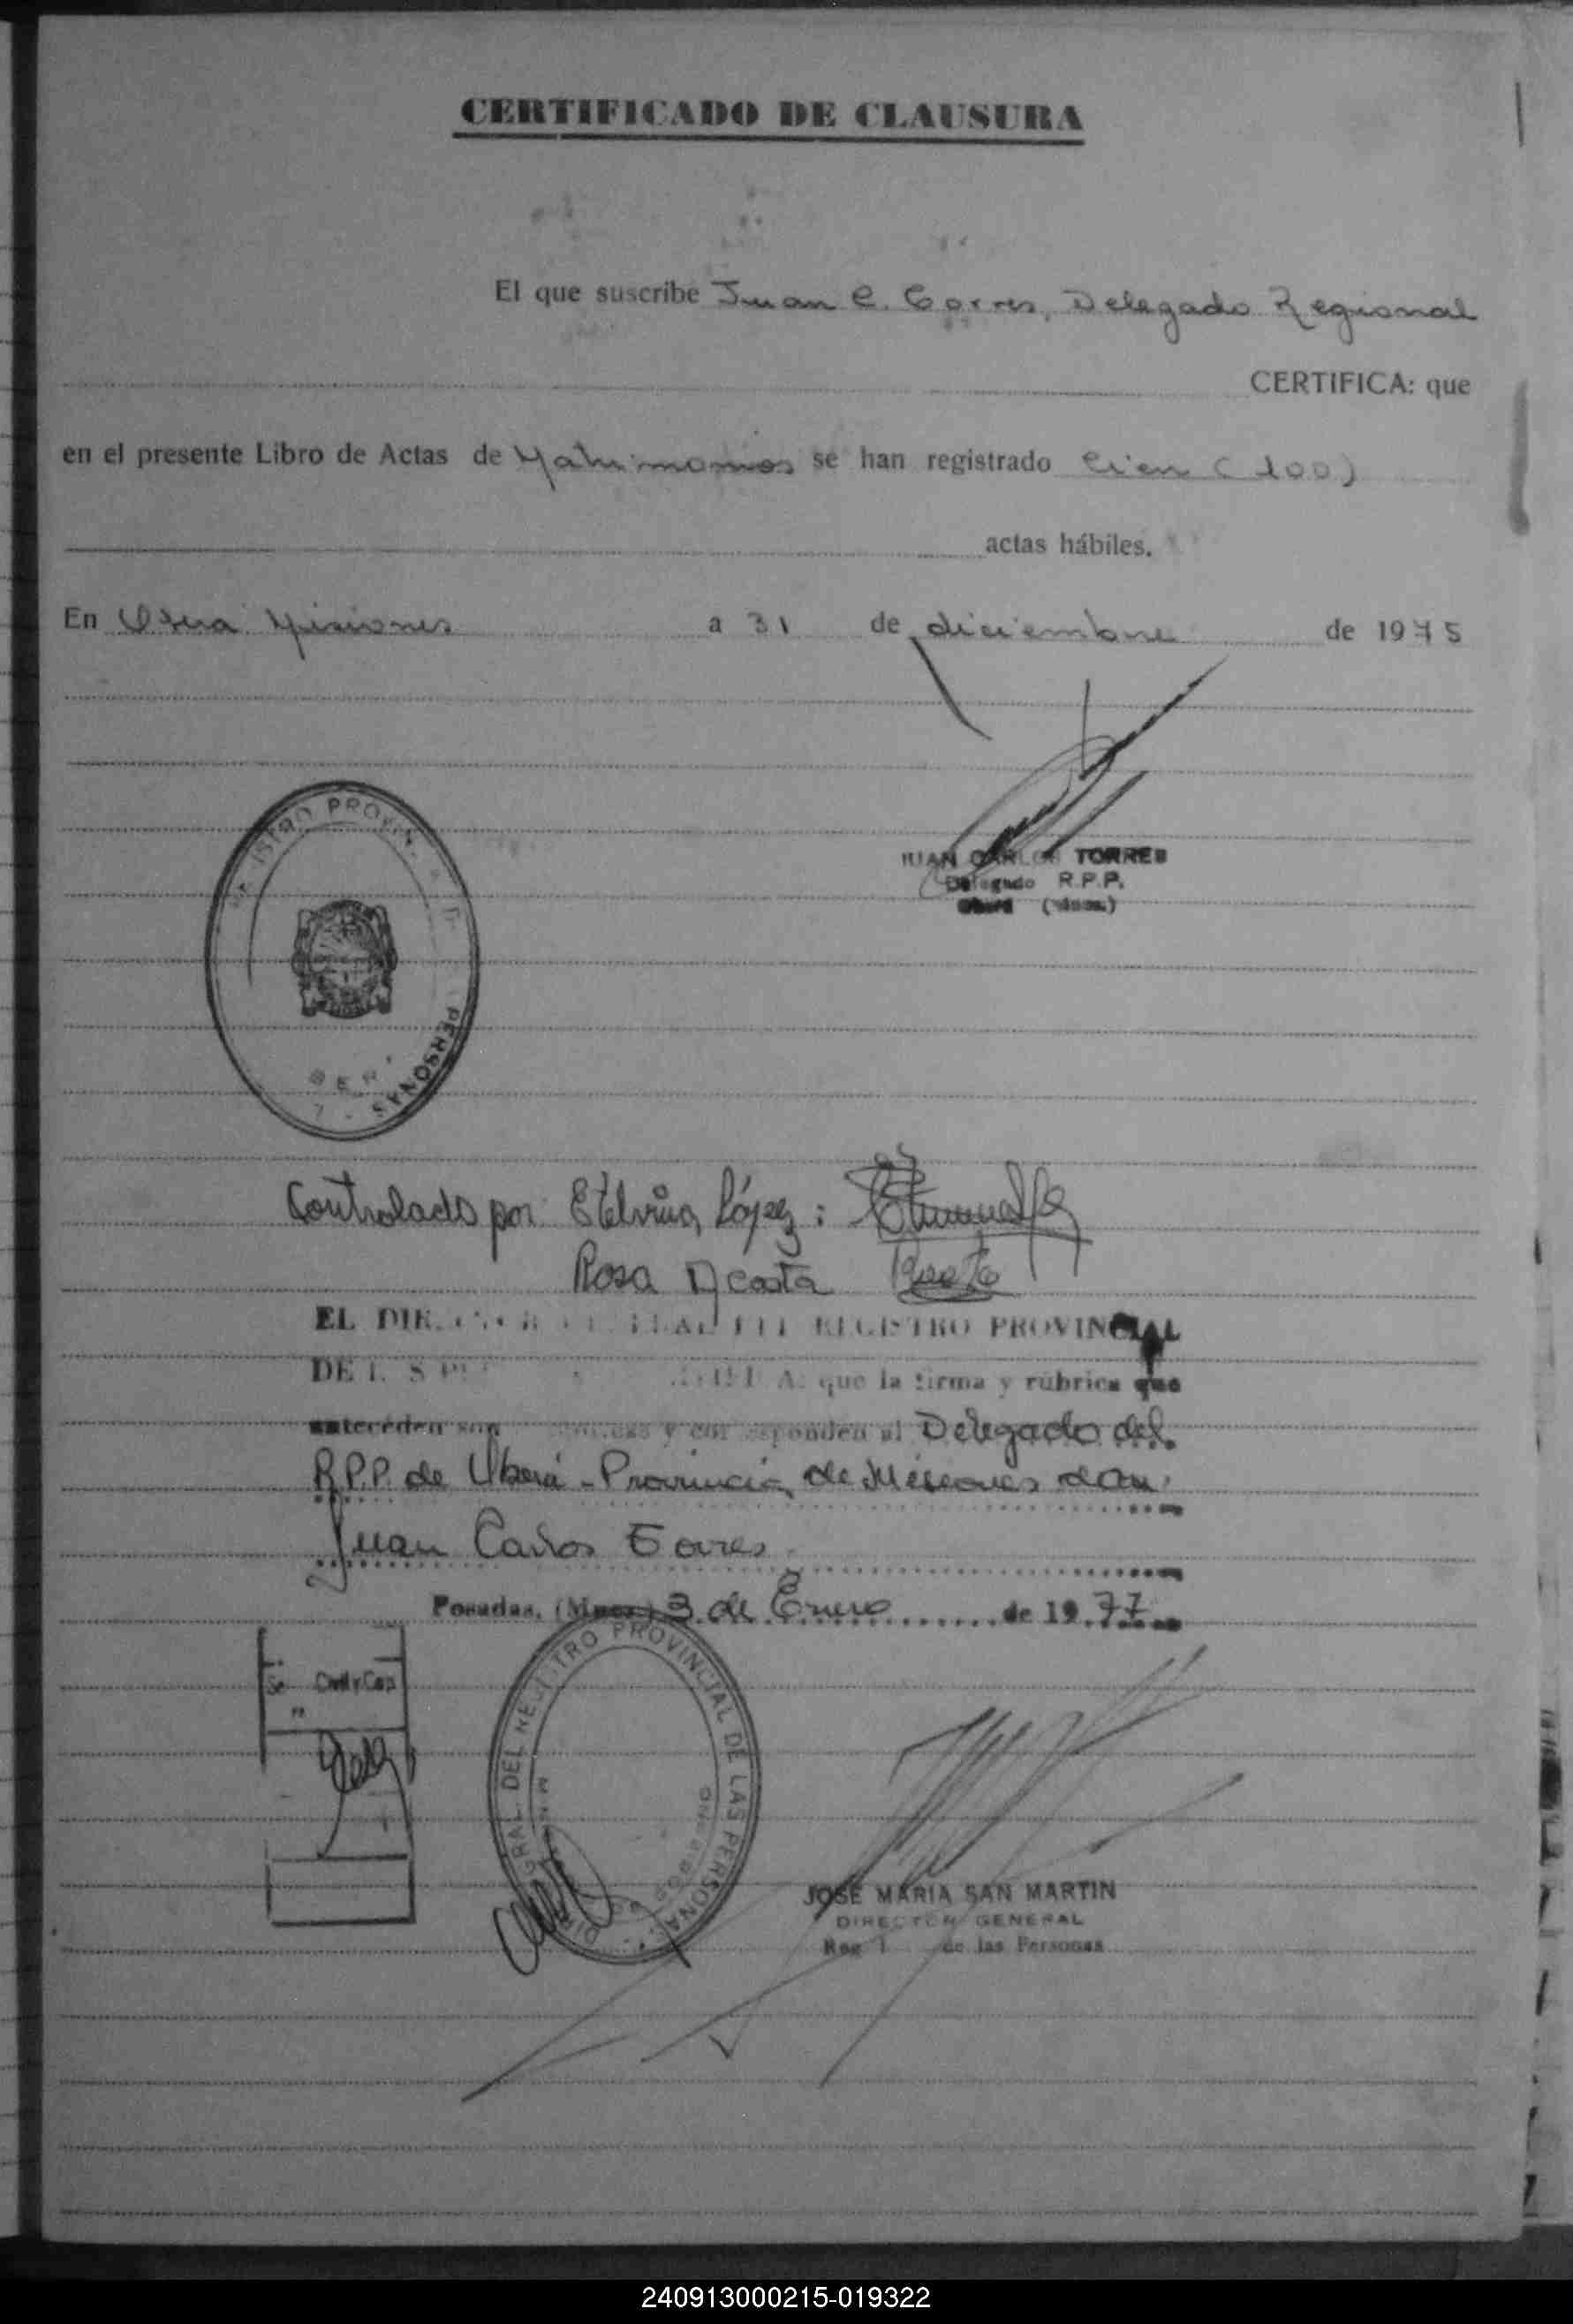 CERTIFICADO DE CLAUSURA
El que suscribe Juan C. Torres, Delegado Regional
CERTIFICA: que
en el presente Libro de Actas de Matrimonios se han registrado Cien (100)
actas hábiles.
En Obera Misiones a 31 de diciembre de 1975
ISTRO PROVIN
PERSONAS
JUAN CARLOS TORRES
Delegado R.P.P.
Oberá (Mnes.)
Controlado por: Etelvina López:
Rosa Acosta
EL DIRECTOR GENERAL DEL REGISTRO PROVINCIAL
DE que la firma y rúbrica que
anteceden son y corresponden al Delegado del
R.P.P. de Oberá - Provincia de Misiones don
Juan Carlos Torres
Posadas, (Mnes.) 3 de Enero de 1977
Civil y Cap
GRAL. DEL REGISTRO PROVINCIAL DE LAS PERSONAS
JOSE MARIA SAN MARTIN
DIRECTOR GENERAL
de las Personas
240913000215-019322